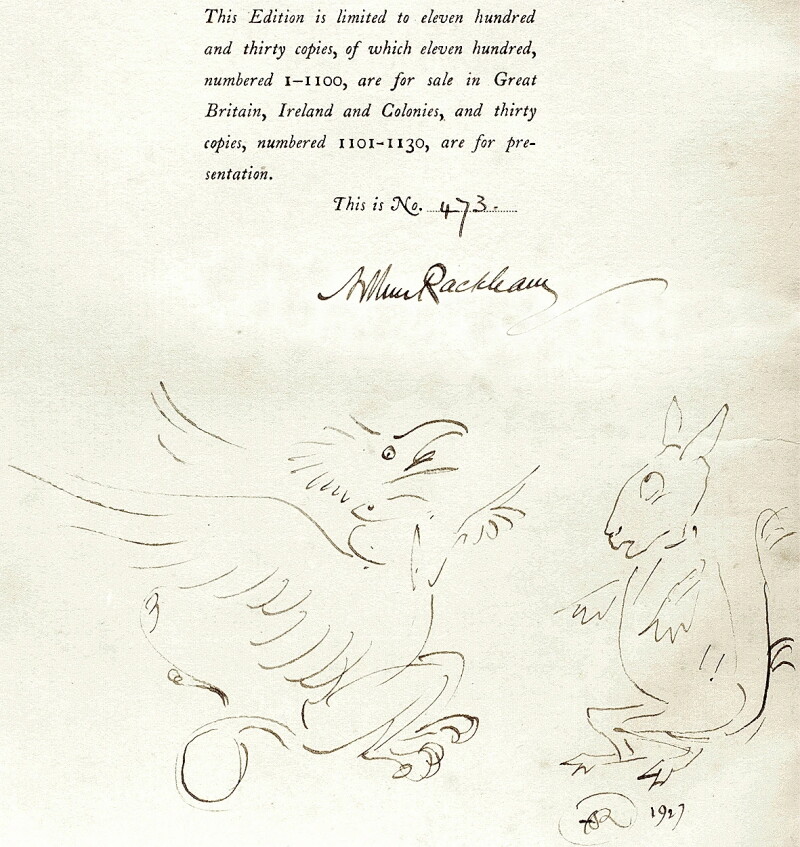 This Edition is limited to eleven hundred
and thirty copies, of which eleven hundred,
numbered 1–1100, are for sale in Great
Britain, Ireland and Colonies, and thirty
copies, numbered 1101-1130, are for pre-
sentation.
This is No. 473.
Arthur Rackham
AR 1927